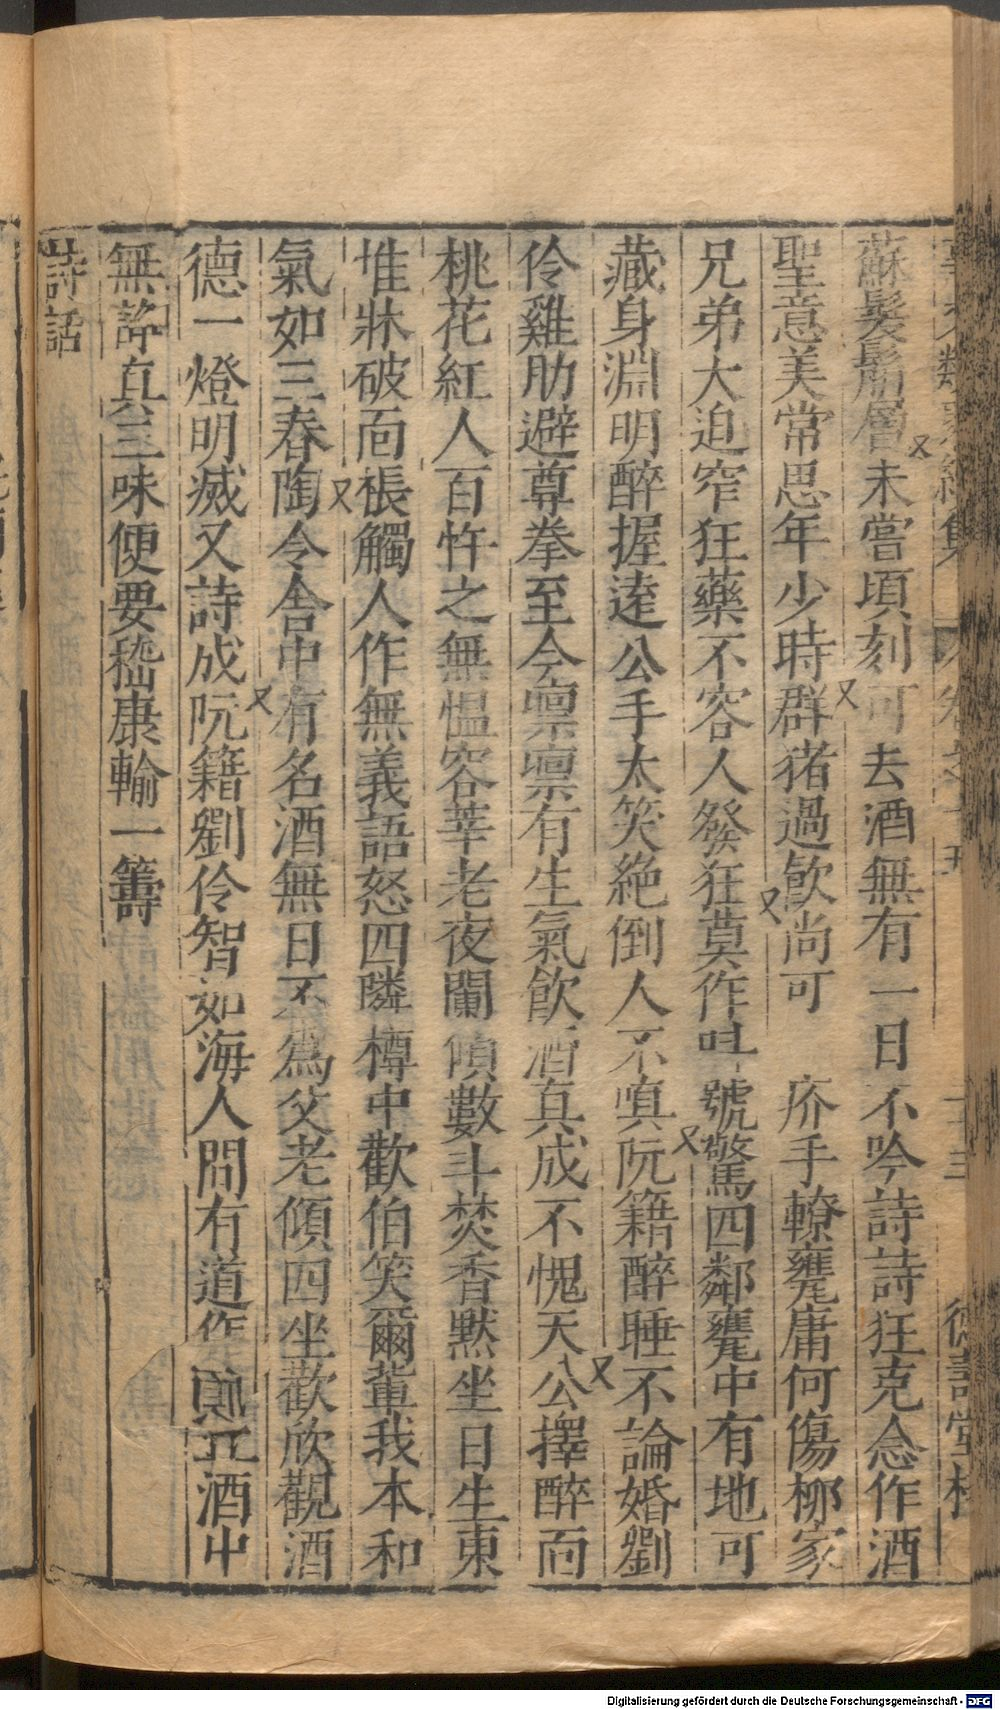 蘇髮鬅鬙未嘗頃刻可去酒無有一日不吟詩詩狂克念作酒
聖意美常思年少時群猪過飲尚可 疥手轑甕庸何傷柳家
兄弟大迫窄狂藥不容人發狂莫作叫號驚四鄰甕中有地可
藏身淵明醉握逺公手太笑絶倒人不嗔阮籍醉睡不論婚劉
伶雞肋避尊拳至今凛凛有生氣飲酒真成不愧天公擇醉面
桃花紅人百忤之無愠容莘老夜闌傾數斗焚香黙坐日生東
堆牀破面棖觸人作無義語怒四隣樽中歡伯笑爾輩我本和
氣如三春陶令舎中有名酒無日不爲父老傾四坐歡欣觀酒
德一燈明滅又詩成阮籍劉伶智如海人間有道作 酒中
無諍真三昧便要嵇康輸一籌
詩話
德壽堂梓
Digitalisierung gefördert durch die Deutsche Forschungsgemeinschaft - DFG